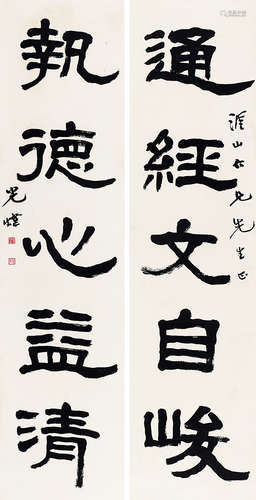 通經文自峻
山仁兄先生正
執德心益清
光